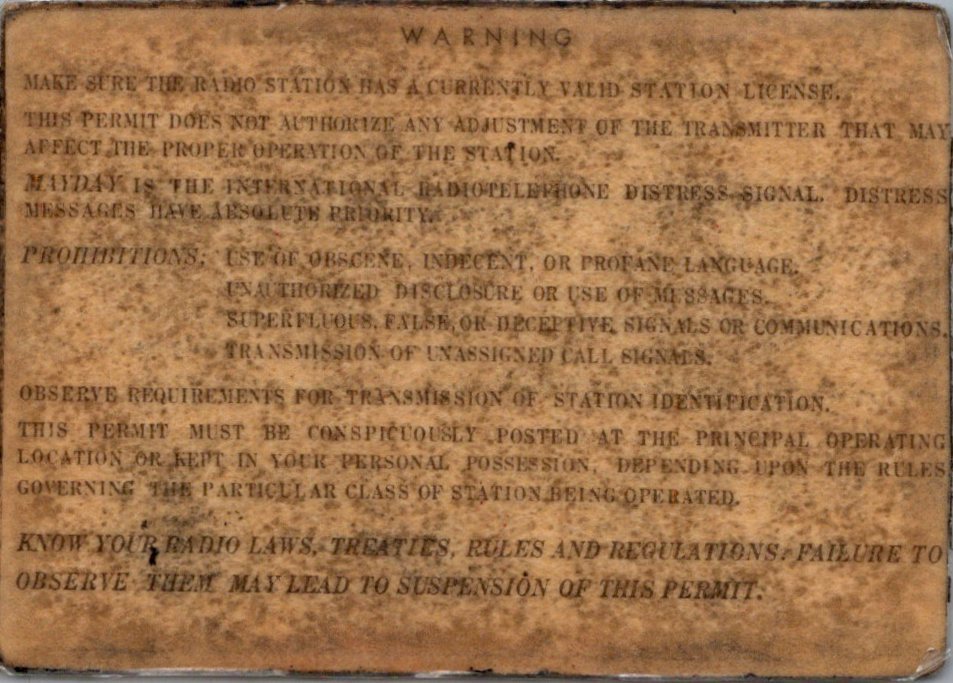 WARNING
MAKE SURE THE RADIO STATION HAS A CURRENTLY VALID STATION LICENSE.
THIS PERMIT DOES NOT AUTHORIZE ANY ADJUSTMENT OF THE TRANSMITTER THAT MAY
AFFECT THE PROPER OPERATION OF THE STATION.
MAYDAY IS THE INTERNATIONAL RADIOTELEPHONE DISTRESS SIGNAL. DISTRESS
MESSAGES HAVE ABSOLUTE PRIORITY.
PROHIBITIONS: USE OF OBSCENE, INDECENT, OR PROFANE LANGUAGE.
UNAUTHORIZED DISCLOSURE OR USE OF MESSAGES.
SUPERFLUOUS, FALSE, OR DECEPTIVE SIGNALS OR COMMUNICATIONS.
TRANSMISSION OF UNASSIGNED CALL SIGNALS.
OBSERVE REQUIREMENTS FOR TRANSMISSION OF STATION IDENTIFICATION.
THIS PERMIT MUST BE CONSPICUOUSLY POSTED AT THE PRINCIPAL OPERATING
LOCATION OR KEPT IN YOUR PERSONAL POSSESSION, DEPENDING UPON THE RULES
GOVERNING THE PARTICULAR CLASS OF STATION BEING OPERATED.
KNOW YOUR RADIO LAWS, TREATIES, RULES AND REGULATIONS. FAILURE TO
OBSERVE THEM MAY LEAD TO SUSPENSION OF THIS PERMIT.